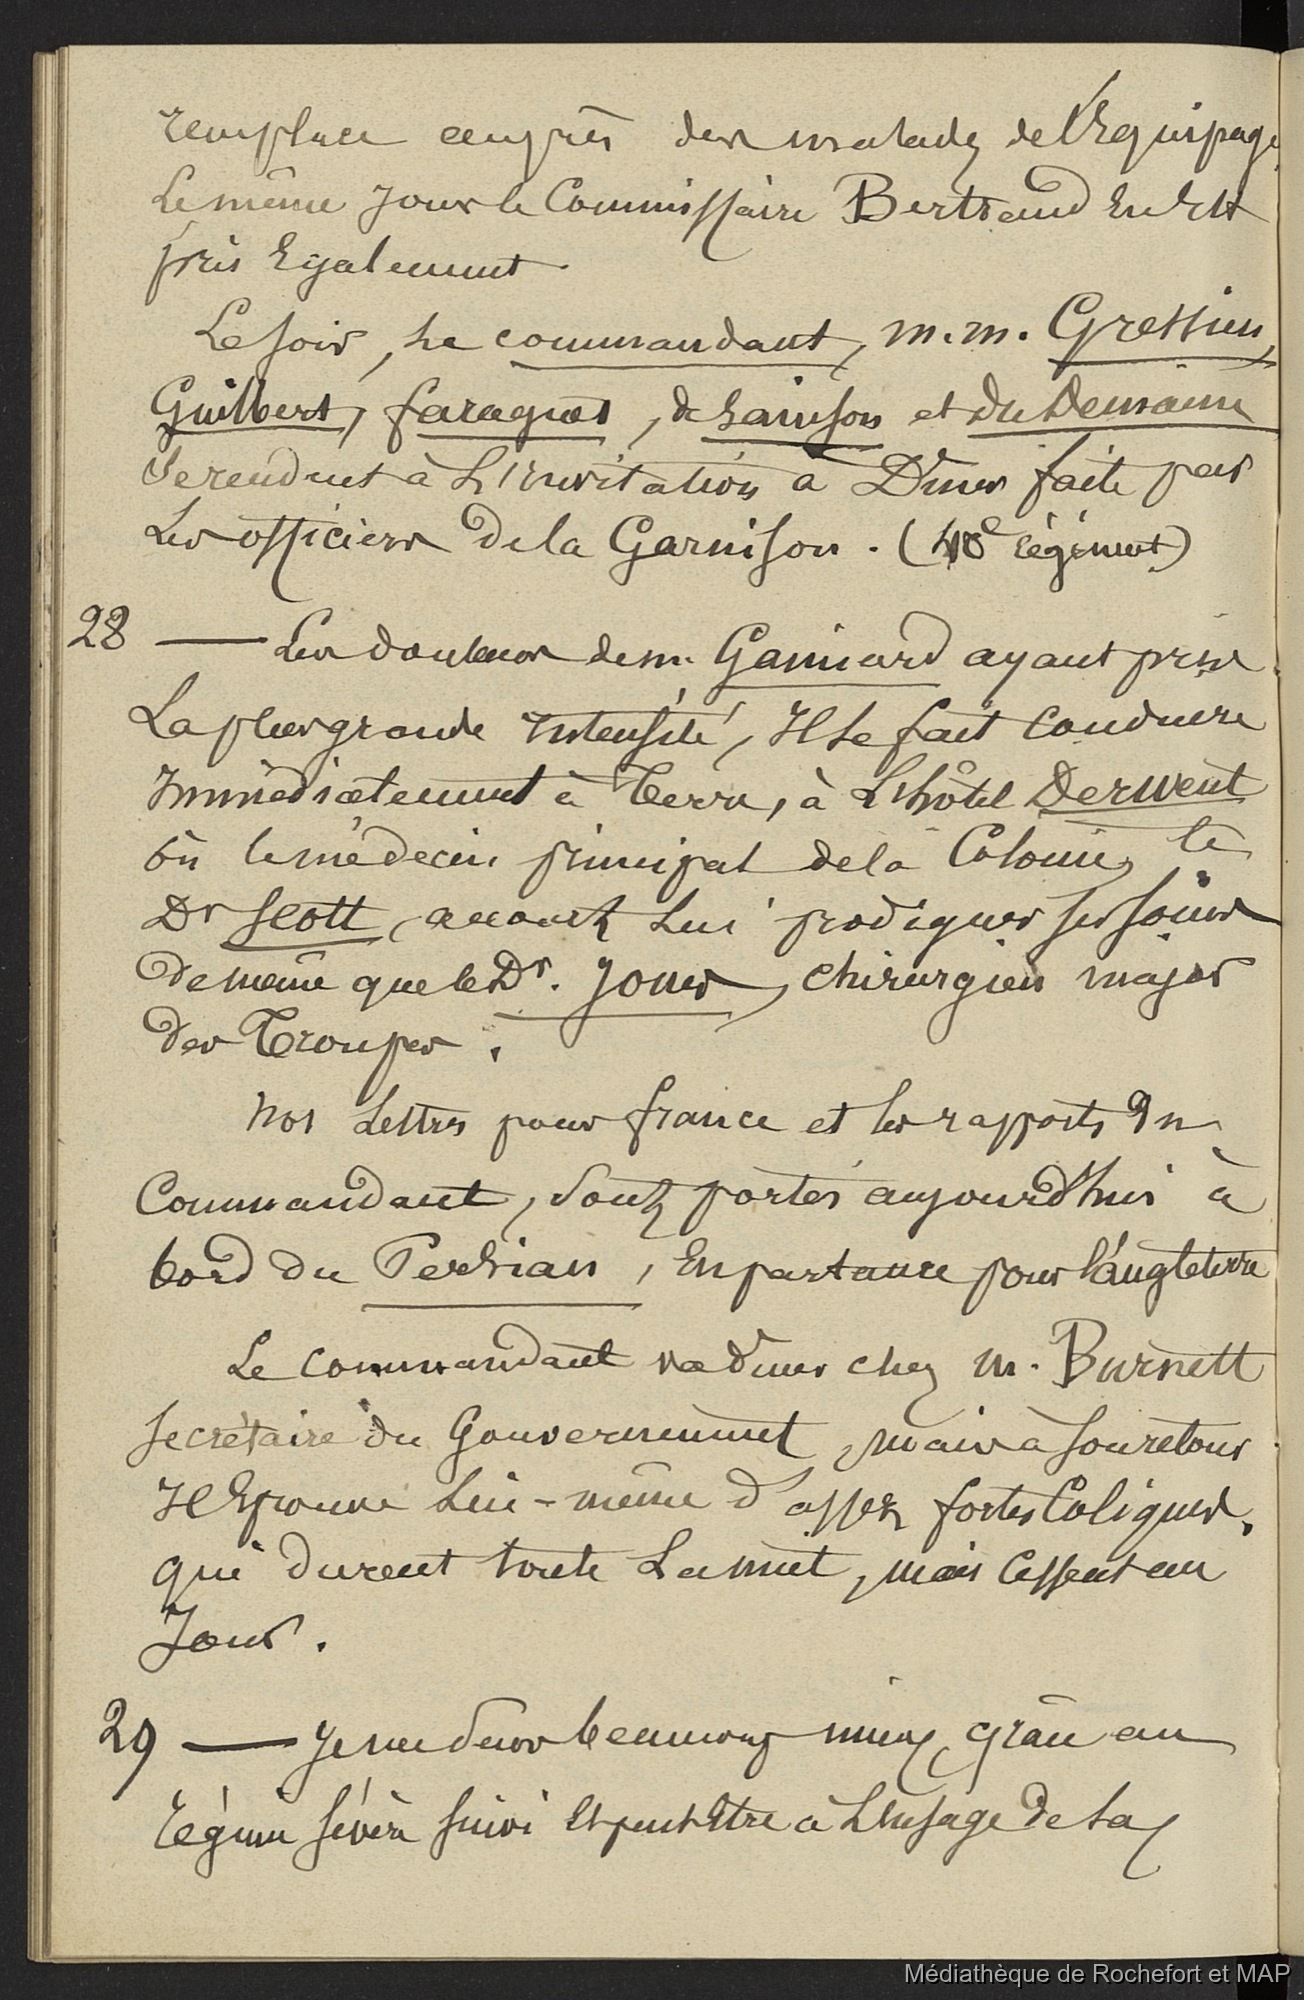 remplace auprès des malades de l'Equipage
Le même Jour le Commissaire Bertrand En Est
pris Egalement.
Le soir, Le commandant, m.m. Gressien,
Guilbert, faraguet, de Sainson et Du Demaine
Se rendent à L'Invitation à Diner faite par
Les officiers de la Garnison. (40e régiment)
28 — Les douleurs de m. Gaimard ayant pris
La plus grande Intensité, Il Se fait conduire
Immédiatement à Terre, à L'hôtel Derwent
où le médecin principal de la Colonie, le
Dr Scott, accourt Lui prodiguer ses soins
de même que le Dr. Jones, chirurgien major
des Troupes.
Nos Lettres pour france et les rapports Du
Commandant, Sont portés aujourd'hui à
bord du Persian, En partance pour l'angleterre
Le commandant va diner chez m. Burnett
Secrétaire du Gouvernement, mais à son retour
Il Eprouve Lui-même d'assez fortes Coliques,
qui durent toute La nuit, mais Cessent au
Jour.
29 — Je me sens beaucoup mieux, grâce au
régime sévère suivi Et peut-Etre à L'usage de la